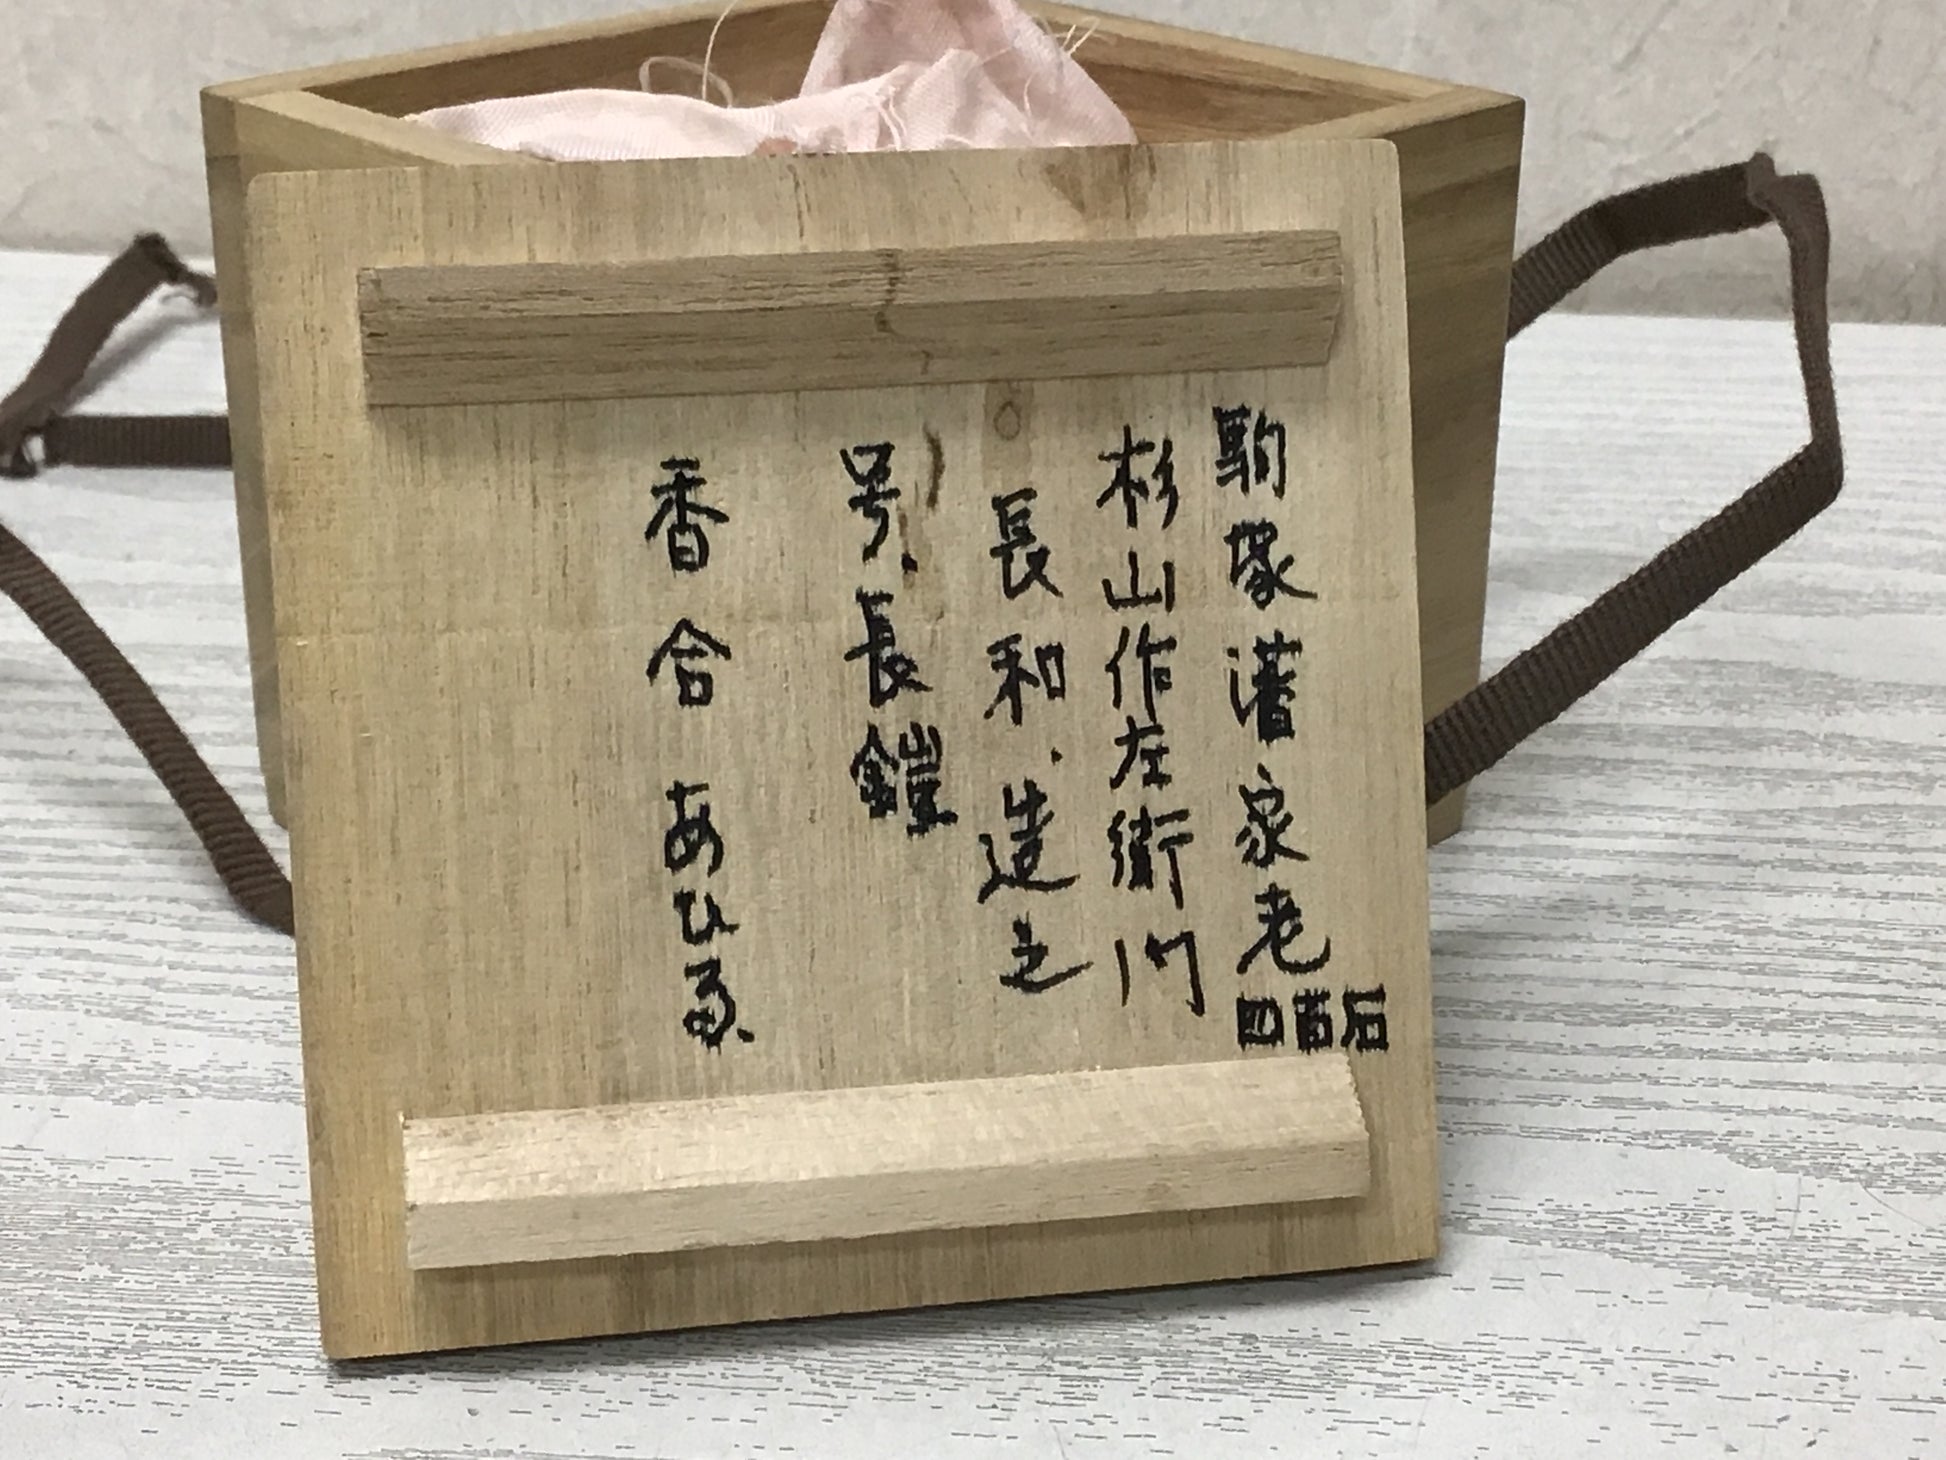 駒塚藩家老四百石
杉山作左衛門
長和.造之
号.長鎧
香合あひる.